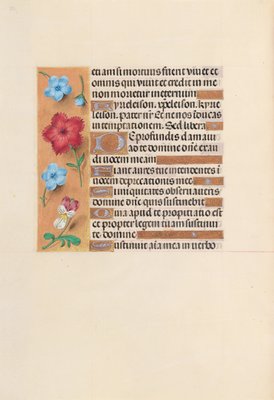 eti am si mortuus fuerit vivet et
omnis qui vivit et credit in me
non morietur in eternum
Kyrieleison. xp̄eleison. kyrie
leison. pater nr̄ Et ne nos īducas
in temptationem. Sed libera
De profundis clamavi
ad te domine dn̄e exau
di vocem meam
Fiant aures tue intendentes ī
vocem deprecationis mee
Si iniquitates observaveris
domine dn̄e quis sustinebit
Quia apud te propitiatio est
et propter legem tuam sustinui
te domine
Sustinuit aīa mea in verbo